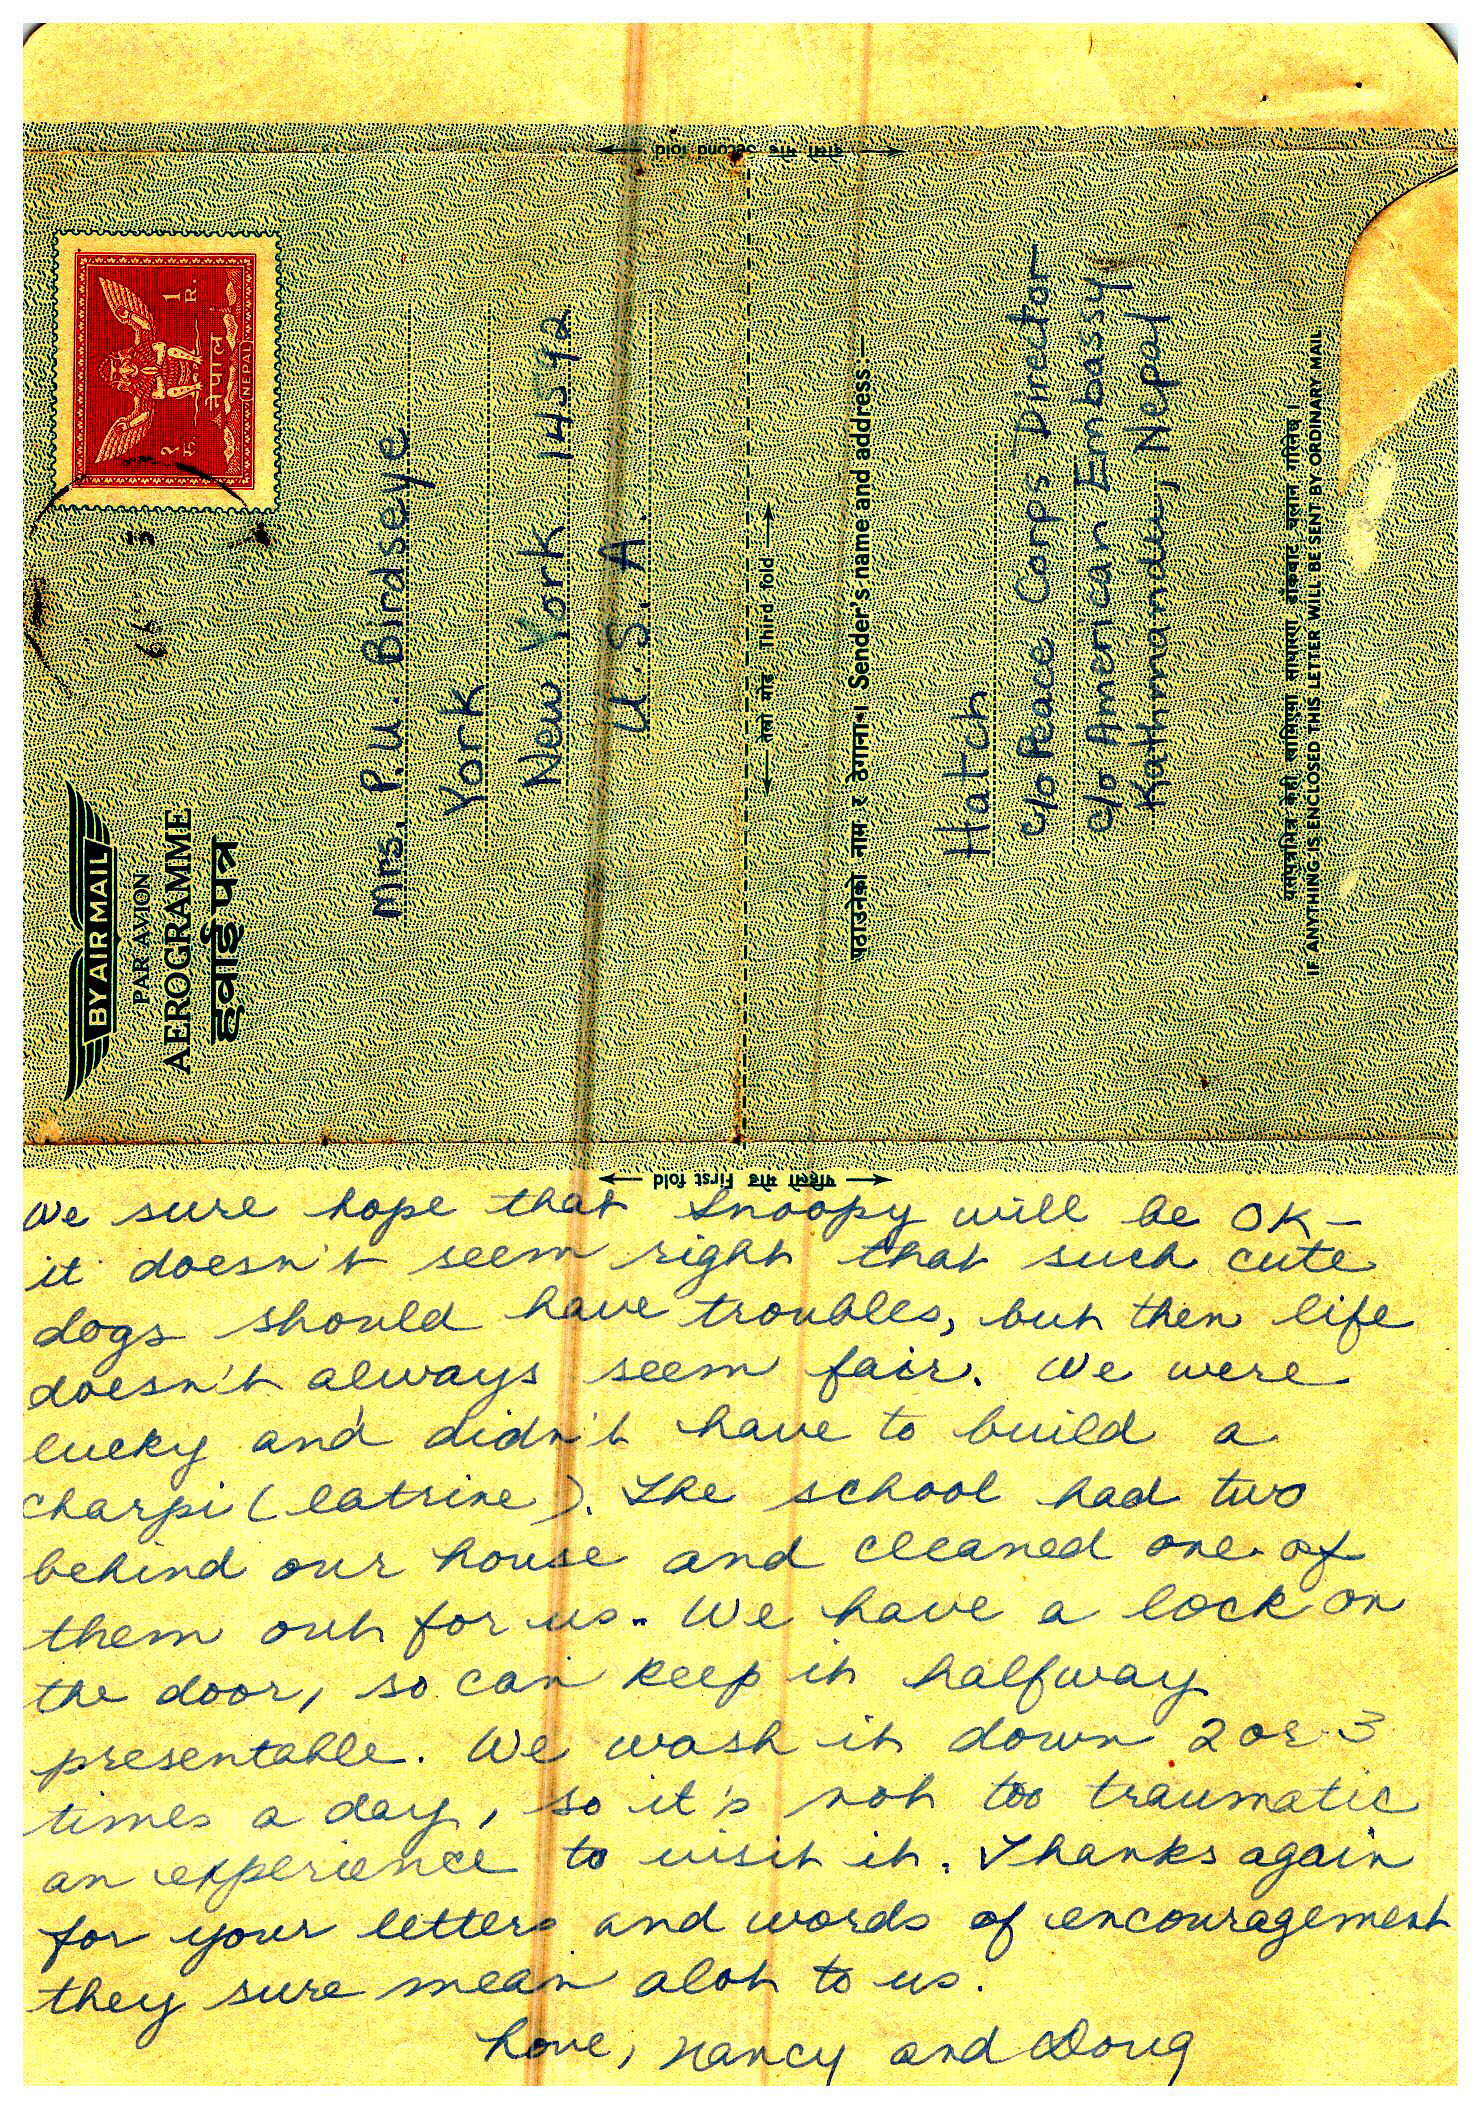 दोस्रो मोड Second fold
1 R.
१ रु.
नेपाल
NEPAL
BY AIR MAIL
PAR AVION
AEROGRAMME
हवाई पत्र
Mrs. P.U. Birdseye
York
New York 14592
U.S.A.
तेस्रो मोड Third fold
पठाउनेको नाम र ठेगाना। Sender's name and address:—
Hatch
c/o Peace Corps Director
c/o American Embassy
Kathmandu, Nepal
यसपत्रभित्र केही राखिएमा साधारण डाँकबाट चलान गरिनेछ।
IF ANYTHING IS ENCLOSED THIS LETTER WILL BE SENT BY ORDINARY MAIL
पहिलो मोड First fold
We sure hope that Snoopy will be OK –
it doesn't seem right that such cute
dogs should have troubles, but then life
doesn't always seem fair. We were
lucky and didn't have to build a
charpi (latrine). The school had two
behind our house and cleaned one of
them out for us. We have a lock on
the door, so can keep it halfway
presentable. We wash it down 2 or 3
times a day, so it's not too traumatic
an experience to visit it. Thanks again
for your letters and words of encouragement
they sure mean alot to us.
Love, Nancy and Doug